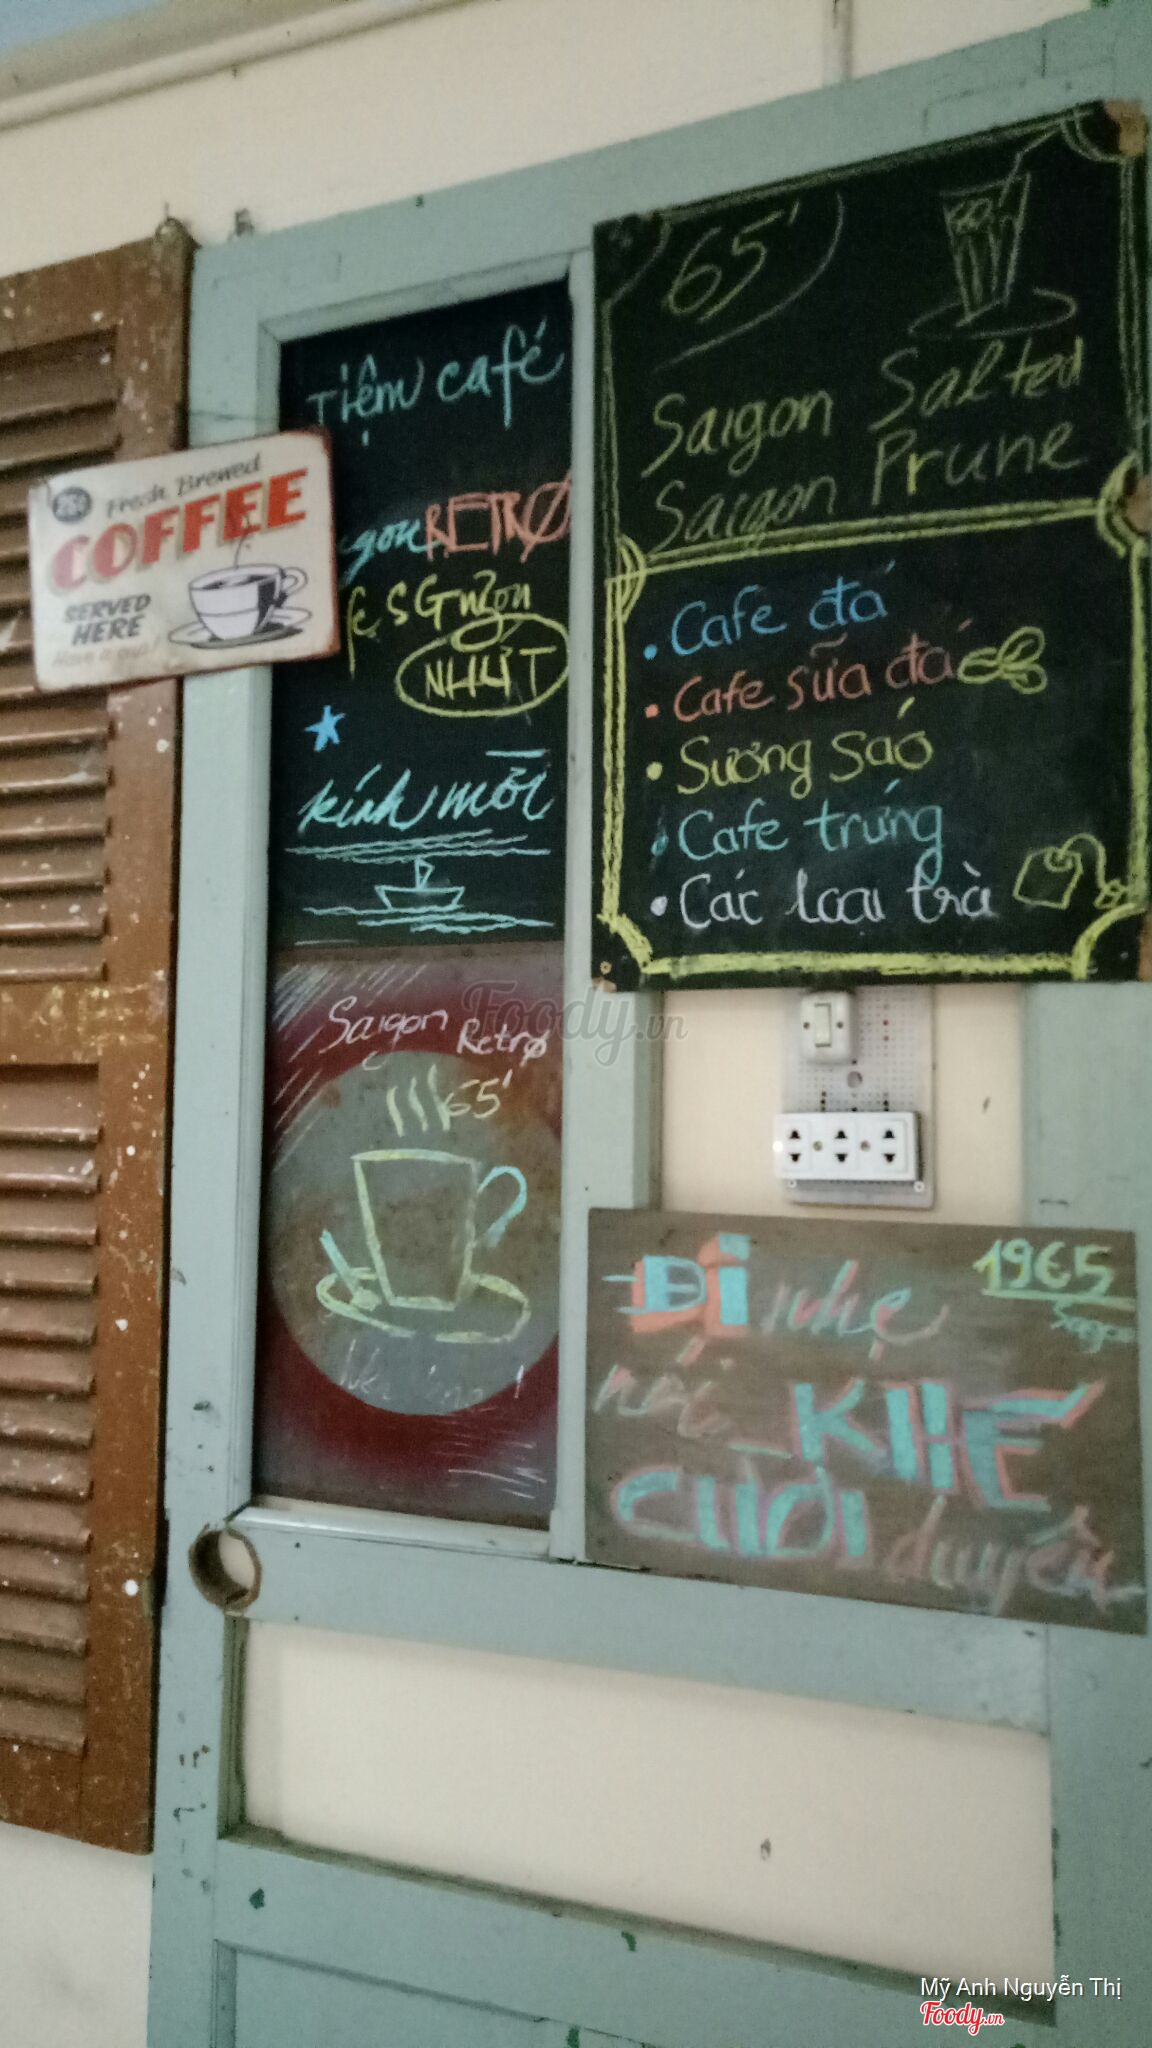 Tiệm café
RETRO
SG ngon
NHỨT
kính mời
25¢
Fresh Brewed
COFFEE
SERVED
HERE
Have a cup!
65'
Saigon Salted
Saigon Prune
• Cafe đá
• Cafe sữa đá
• Sương Sáo
• Cafe trứng
• Các loại trà
Saigon
Retro
65'
1965
Saigon
ĐI nhẹ
nói KHẼ
CƯỜI duyên
Foody.vn
Mỹ Anh Nguyễn Thị
Foody.vn